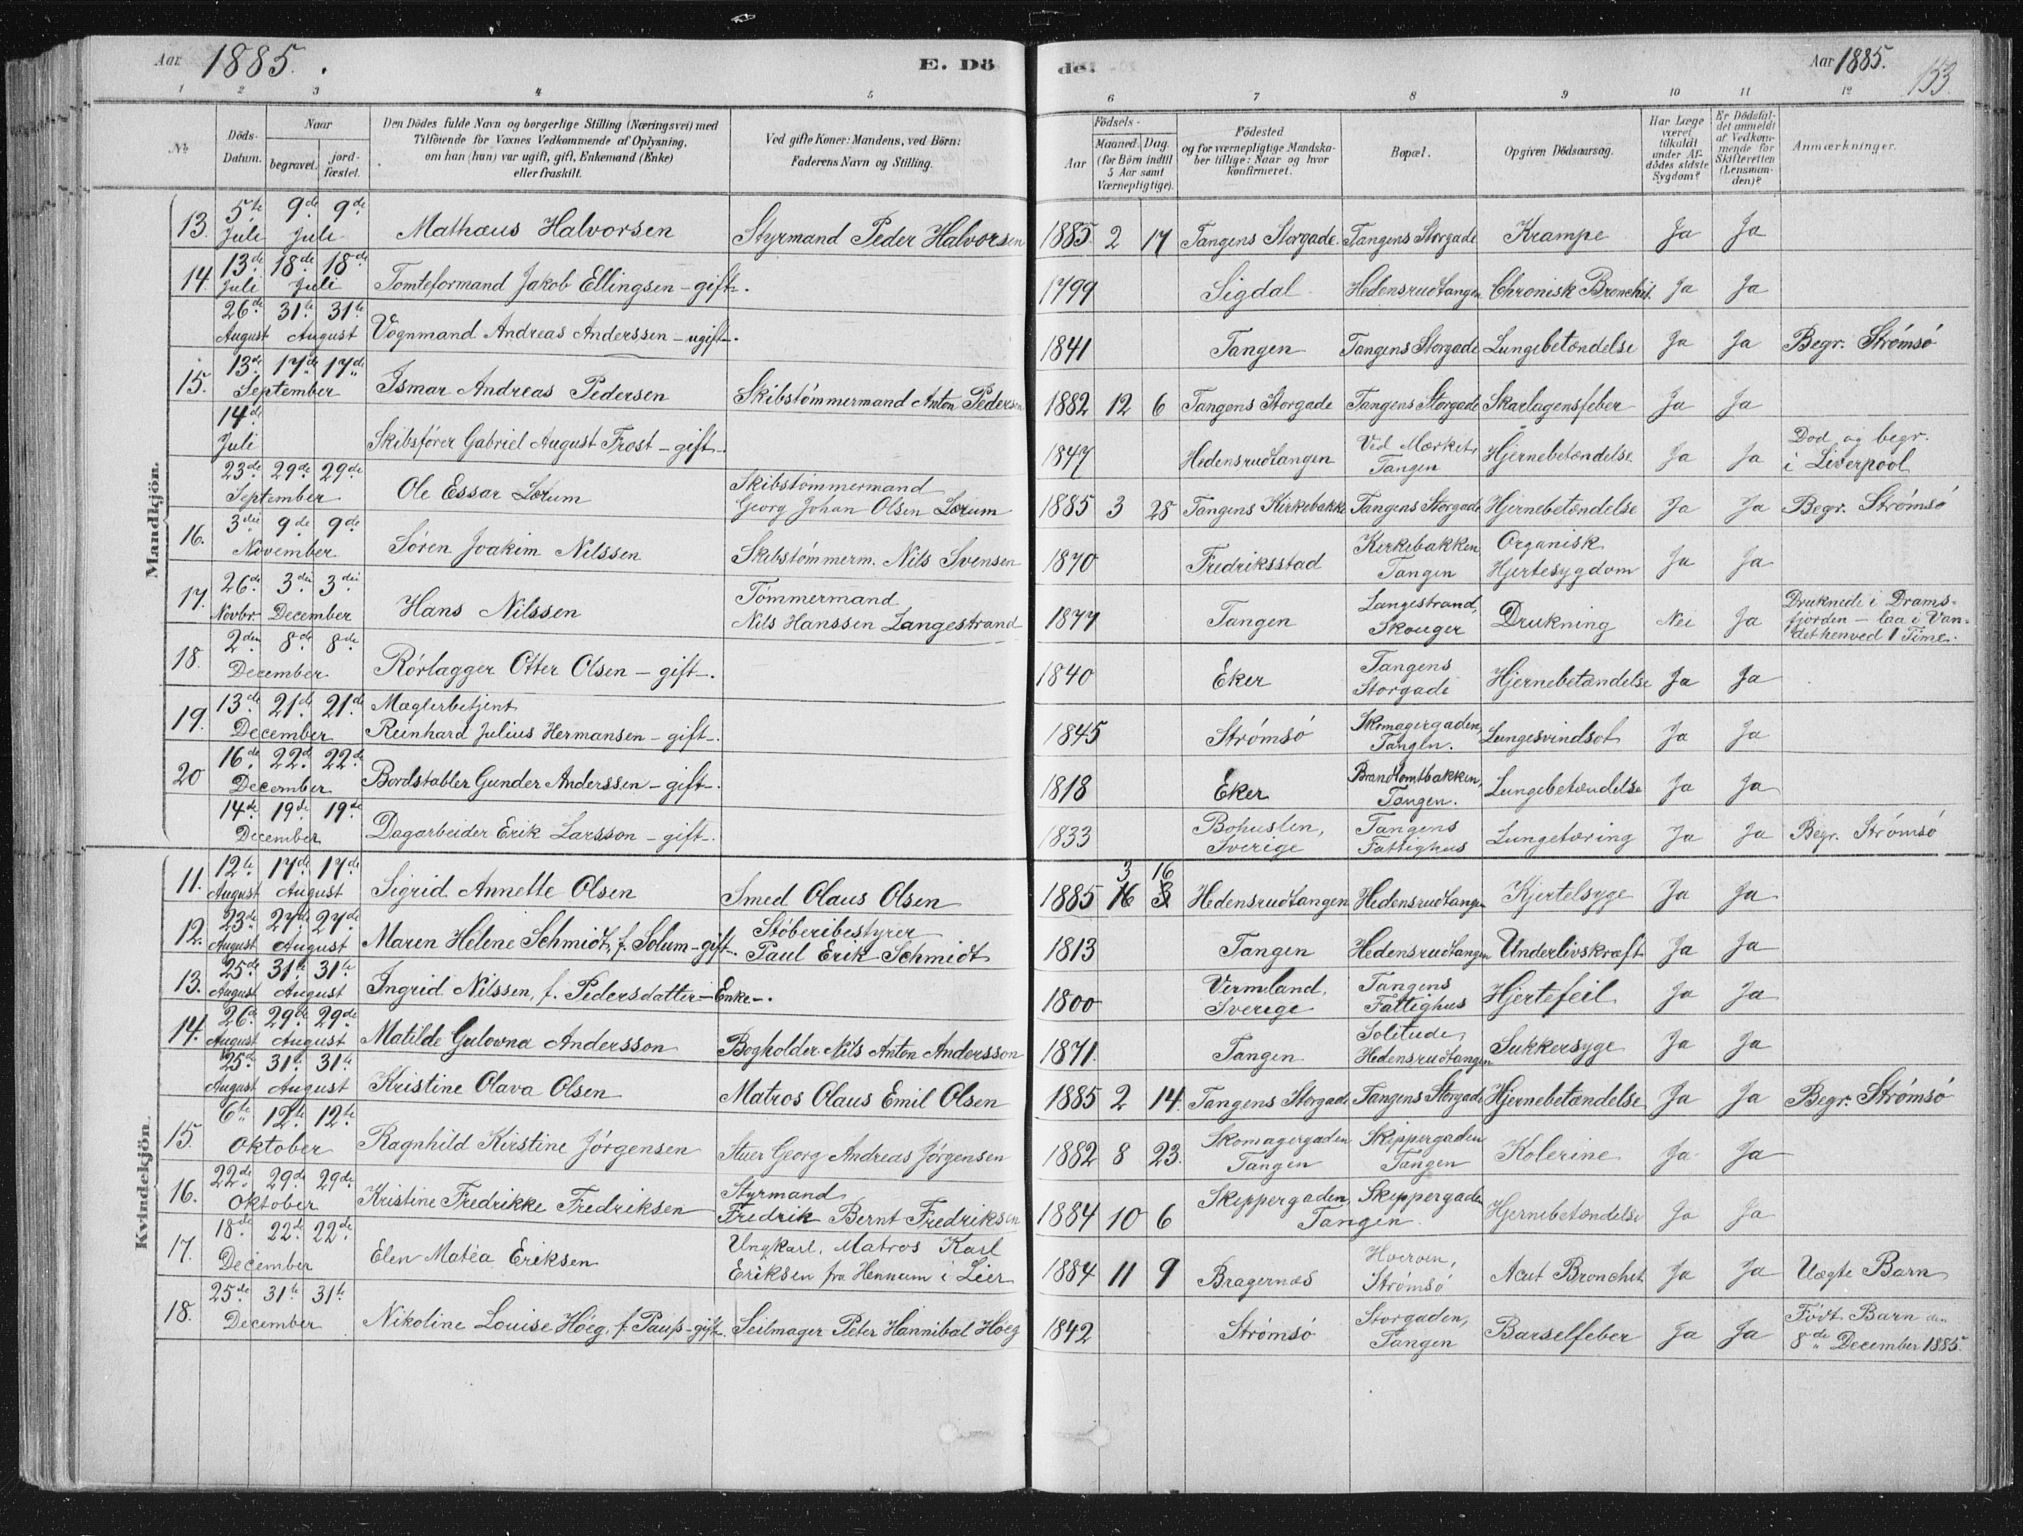 Aar 1885. E. Dö de. Aar 1885. 153.
1 2 3 4 5 6 7 8 9 10 11 12
No. Döds-Datum. Naar begravet. jord-fæstet. Den Dödes fulde Navn og borgerlige Stilling (Næringsvei) med Tilföiende for Voxnes Vedkommende af Oplysning, om han (hun) var ugift, gift, Enkemand (Enke) eller fraskilt. Ved gifte Koner: Mandens, ved Börn: Faderens Navn og Stilling. Födsels- Aar Maaned. Dag. (for Börn indtil 5 Aar samt Værnepligtige). Födested og for værnepligtige Mandskaber tillige: Naar og hvor konfirmeret. Bopæl. Opgiven Dödsaarsag. Har Læge været tilkaldt under Afdödes sidste Sygdom? Er Dödsfaldet anmeldt af Vedkommende for Skifteretten (Lensmanden)? Anmærkninger.
Mandkjön.
13. 5te Juli 9de 9de Juli Mathæus Halvorsen Styrmand Peder Halvorsen 1885. 2 17 Tangens Storgade Tangens Storgade Krampe Ja Ja
14. 13de Juli 18de 18de Juli Tomteformand Jakob Ellingsen - gift. 1799 Sigdal Hedensrudtangen Chronisk Bronchit. Ja Ja
26de August 31te 31te August Vognmand Andreas Anderssen - ugift. 1841 Tangen Tangens Storgade Lungebetændelse Ja Ja Begr. Strømsø
15. 13de 17de 17de September Ismar Andreas Pedersen Skibstømmermand Anton Pedersen 1882 12 6 Tangens Storgade Tangens Storgade Skarlagensfeber Ja Ja
14de Juli Skibsfører Gabriel August Frost - gift 1847 Hedensrudtangen Ved Mærket, Tangen Hjernebetændelse Ja Ja Død og begr. i Liverpool
23de 29de 29de September Ole Essar Lørum Skibstømmermand Georg Johan Olsen Lørum 1885 3 28 Tangens Kirkebakke Tangens Storgade Hjernebetændelse Ja Ja Begr. Strømsö
16. 3die 9de 9de November Søren Joakim Nilssen Skibstømmerm. Nils Svensen 1870 Fredriksstad Kirkebakken Tangen Organisk Hjertesygdom Ja Ja
17. 26de Novbr. 3die 3die December Hans Nilssen Tømmermand Nils Hanssen Langestrand 1877 Tangen Langestrand, Skouger Drukning Nei Ja Druknede i Dramsfjorden - laa i Vandet henved 1 Time.
18. 2den 8de 8de December Rørlægger Otter Olsen - gift. 1840 Eker Tangens Storgade Hjernebetændelse Ja Ja
19. 13de 21de 21de December Mæglerbetjent Reinhard Julius Hermansen - gift. 1845 Strømsö Skomagergaden, Tangen. Lungesvindsot Ja Ja
20 16de 22de 22de December Bordstabler Gunder Anderssen - gift. 1818 Eker Brandtomtbakken, Tangen. Lungebetændelse Ja Ja
14de 19de 19de December Dagarbeider Erik Larsson - gift. 1833 Bohuslen, Sverige Tangens Fattighus Lungetæring Ja Ja Begr. Strømsö
Kvindekjön.
11. 12te August 17de 17de August Sigrid Annette Olsen Smed Olaus Olsen 1885 3 16 Hedensrudtangen Hedensrudtangen Kjertelsyge Ja Ja
12. 23de August 27de 27de August Maren Helene Schmidt, f. Solum - gift. Støberibestyrer Paul Erik Schmidt 1813 Tangen Hedensrudtangen Underlivskræft Ja Ja
13. 25de August 31te 31te August Ingrid Nilssen, f. Pedersdatter - Enke. 1800 Vermland, Sverige Tangens Fattighus Hjertefeil Ja Ja
14. 26de August 29de 29de August Matilde Gulovna Andersson Bogholder Nils Anton Andersson 1871. Tangen Solitude, Hedensrudtangen Sukkersyge Ja Ja
25de August 31te 31te August Kristine Olava Olsen Matros Olaus Emil Olsen 1885 2 14. Tangens Storgade Tangens Storgade Hjernebetændelse Ja Ja Begr. Strømsö
15. 6te 12te 12te Oktober Ragnhild Kirstine Jørgensen Stuer Georg Andreas Jørgensen 1882 8 23. Skomagergaden Tangen Skippergaden Tangen Kolerine Ja Ja
16. 22de 29de 29de Oktober Kristine Fredrikke Fredriksen Styrmand Fredrik Bernt Fredriksen 1884 10 6 Skippergaden, Skippergaden Tangen Hjernebetændelse Ja Ja
17. 18de 22de 22de December Elen Matéa Eriksen Ungkarl, Matros Karl Eriksen fra Hennum i Lier 1884 11 9 Bragernæs Strømsö Acut Bronchit Ja Ja Uægte Barn
18. 25de 31te 31te December Nikoline Louise Høeg, f. Pauss - gift. Seilmager Peter Hannibal Høeg 1842 Strømsö Storgaden, Tangen Barselfeber Ja Ja Født Barn den 8de December 1885.